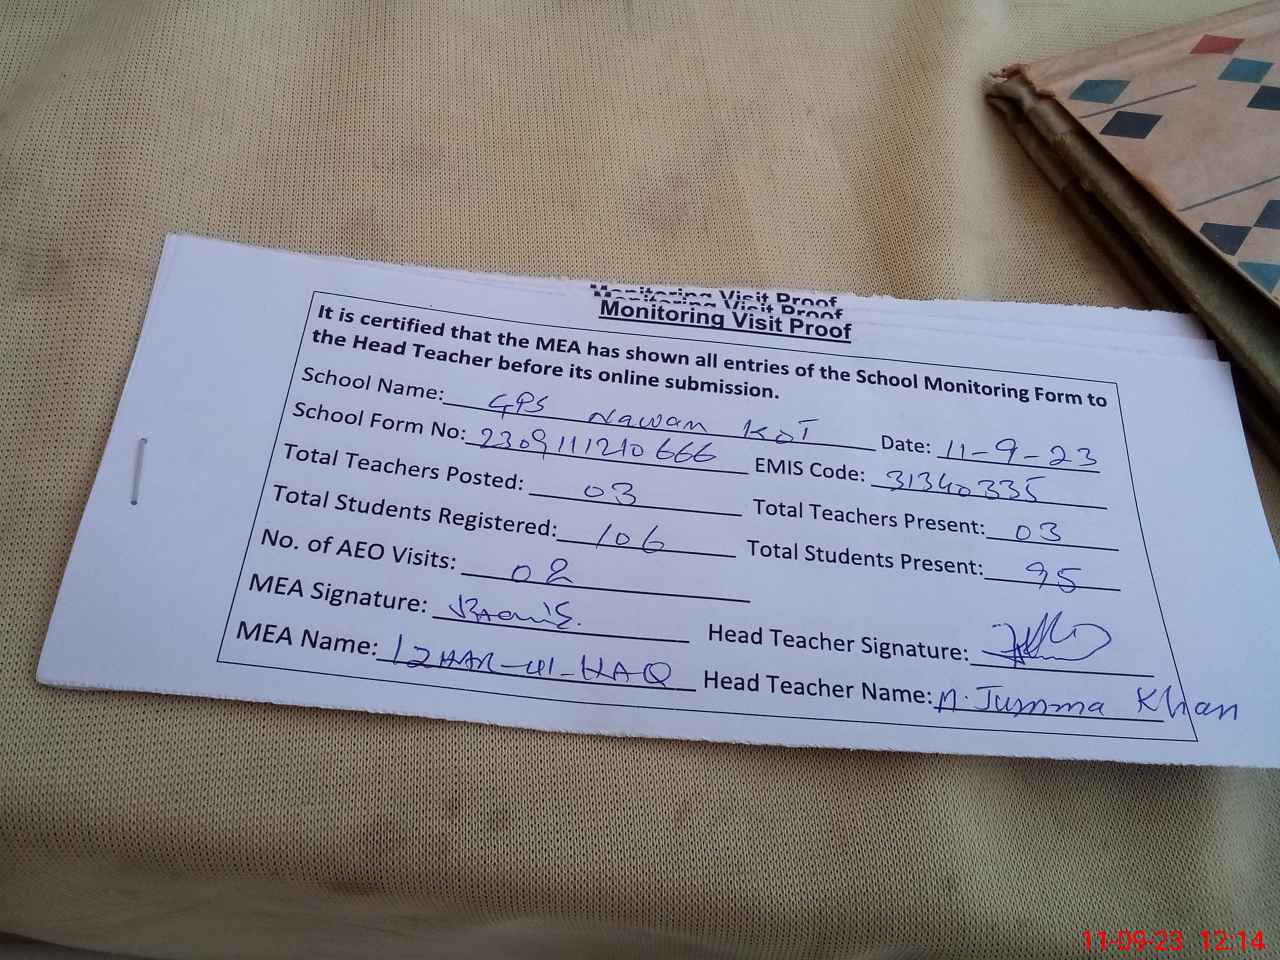 Monitoring Visit Proof
Monitoring Visit Proof
Monitoring Visit Proof
It is certified that the MEA has shown all entries of the School Monitoring Form to
the Head Teacher before its online submission.
School Name: GPS Nawan KOT Date: 11-9-23
School Form No: 2309111210666 EMIS Code: 31340335
Total Teachers Posted: 03 Total Teachers Present: 03
Total Students Registered: 106 Total Students Present: 95
No. of AEO Visits: 02
MEA Signature: Head Teacher Signature:
MEA Name: IZHAR-ul-HAQ Head Teacher Name: A. Jumma Khan
11-09-23 12:14